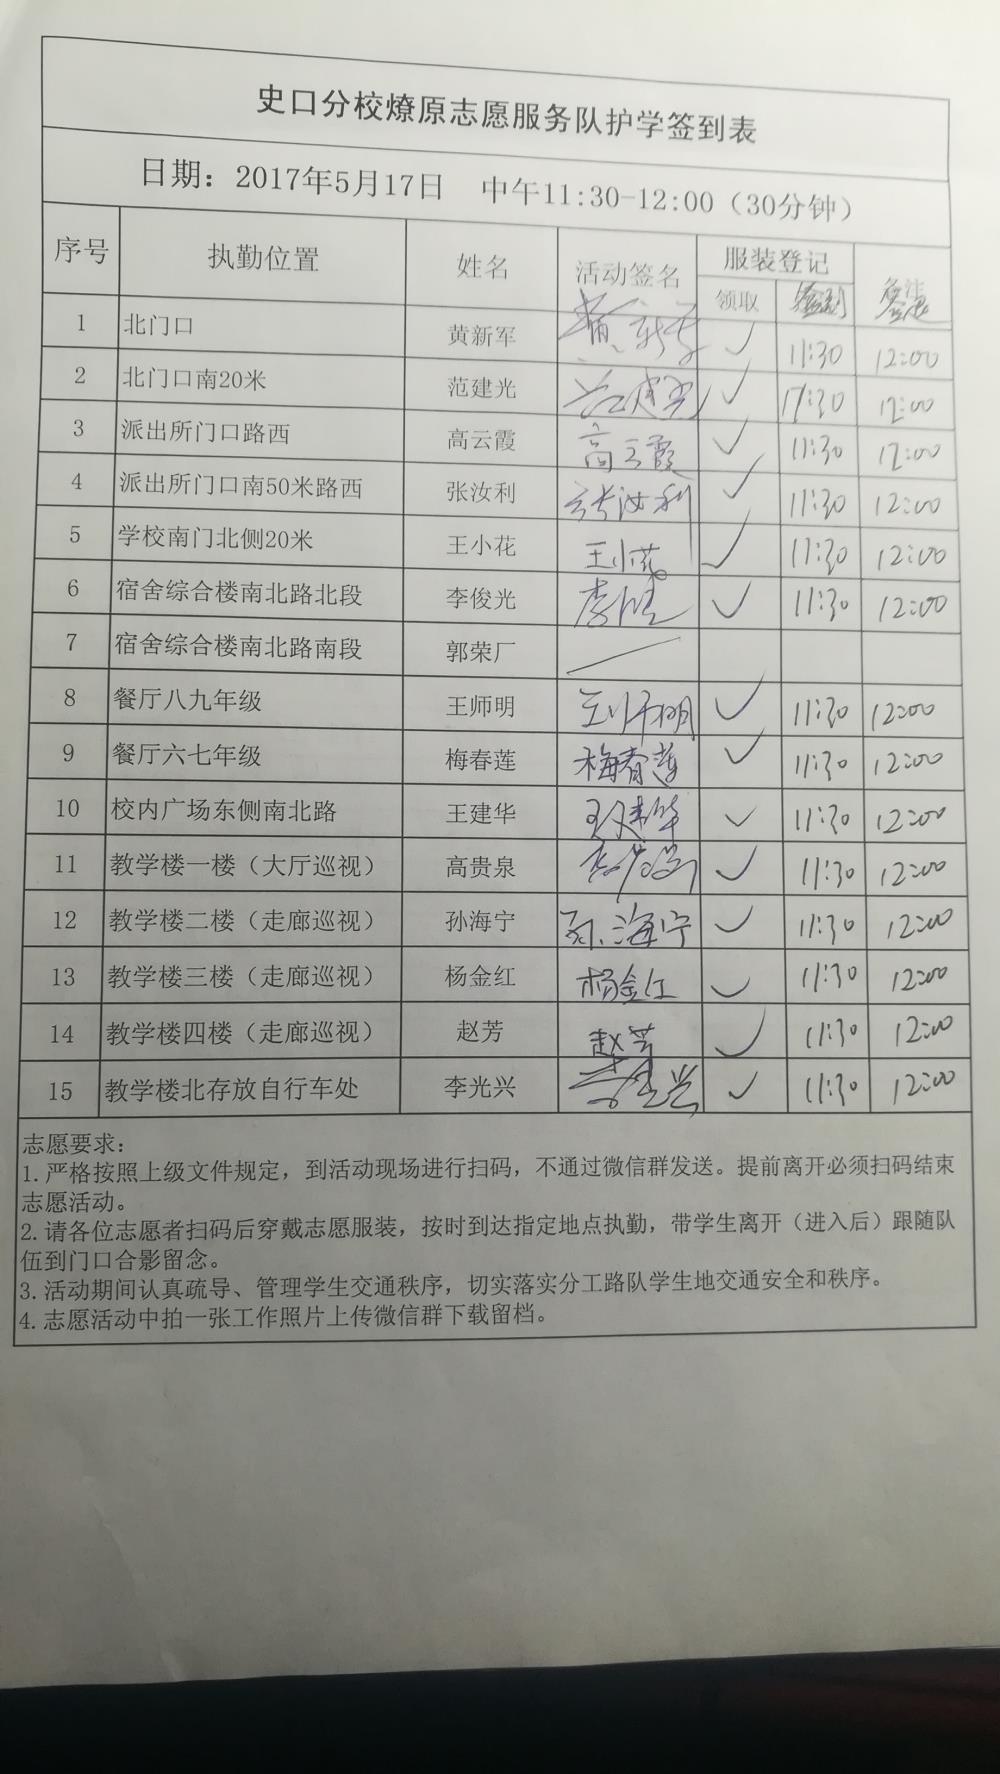 史口分校燎原志愿服务队护学签到表
日期：2017年5月17日 中午11:30-12:00（30分钟）
序号 执勤位置 姓名 活动签名 服装登记 备注
领取 签到 签退
1 北门口 黄新军 黄新军 ✓ 11:30 12:00
2 北门口南20米 范建光 范建光 ✓ 11:30 12:00
3 派出所门口路西 高云霞 高云霞 ✓ 11:30 12:00
4 派出所门口南50米路西 张汝利 张汝利 ✓ 11:30 12:00
5 学校南门北侧20米 王小花 王小花 ✓ 11:30 12:00
6 宿舍综合楼南北路北段 李俊光 ✓ 11:30 12:00
7 宿舍综合楼南北路南段 郭荣厂
8 餐厅八九年级 王师明 王师明 ✓ 11:30 12:00
9 餐厅六七年级 梅春莲 梅春莲 ✓ 11:30 12:00
10 校内广场东侧南北路 王建华 王建华 ✓ 11:30 12:00
11 教学楼一楼（大厅巡视） 高贵泉 ✓ 11:30 12:00
12 教学楼二楼（走廊巡视） 孙海宁 孙海宁 ✓ 11:30 12:00
13 教学楼三楼（走廊巡视） 杨金红 杨金红 ✓ 11:30 12:00
14 教学楼四楼（走廊巡视） 赵芳 赵芳 ✓ 11:30 12:00
15 教学楼北存放自行车处 李光兴 李光兴 ✓ 11:30 12:00
志愿要求：
1.严格按照上级文件规定，到活动现场进行扫码，不通过微信群发送。提前离开必须扫码结束
志愿活动。
2.请各位志愿者扫码后穿戴志愿服装，按时到达指定地点执勤，带学生离开（进入后）跟随队
伍到门口合影留念。
3.活动期间认真疏导、管理学生交通秩序，切实落实分工路队学生地交通安全和秩序。
4.志愿活动中拍一张工作照片上传微信群下载留档。